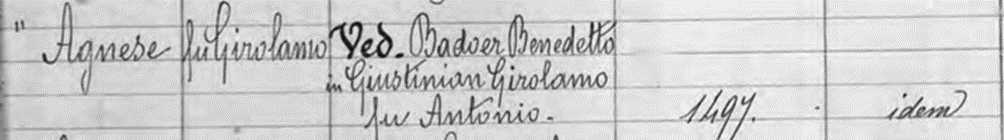 " Agnese fu Girolamo Ved. Badoer Benedetto
in Giustinian Girolamo
fu Antonio. 1497. idem